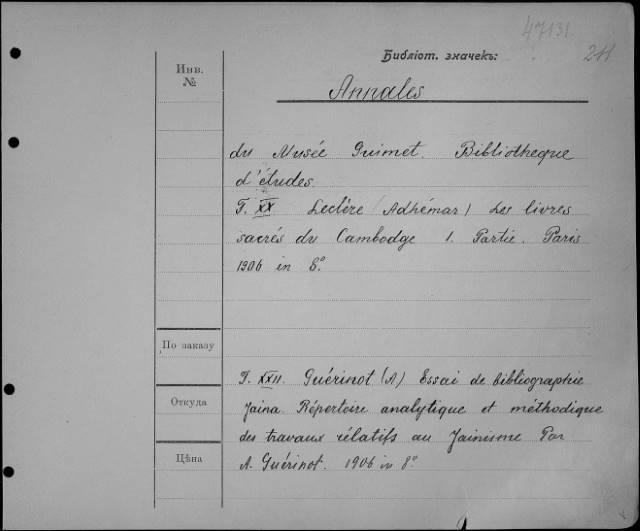 47131
Библіот. значекъ:
211
Инв.
№
Annales
du Musée Guimet. Bibliotheque
d'études.
T. XX Leclère (Adhémar) Les livres
sacrés du Cambodge 1. Partie. Paris
1906 in 8°
По заказу
T. XXII. Guérinot (A) Essai de bibliographie
Откуда
Jaina. Répertoire analytique et méthodique
des travaux rélatifs au Jainisme Par
Цѣна
A. Guérinot. 1906 in 8°